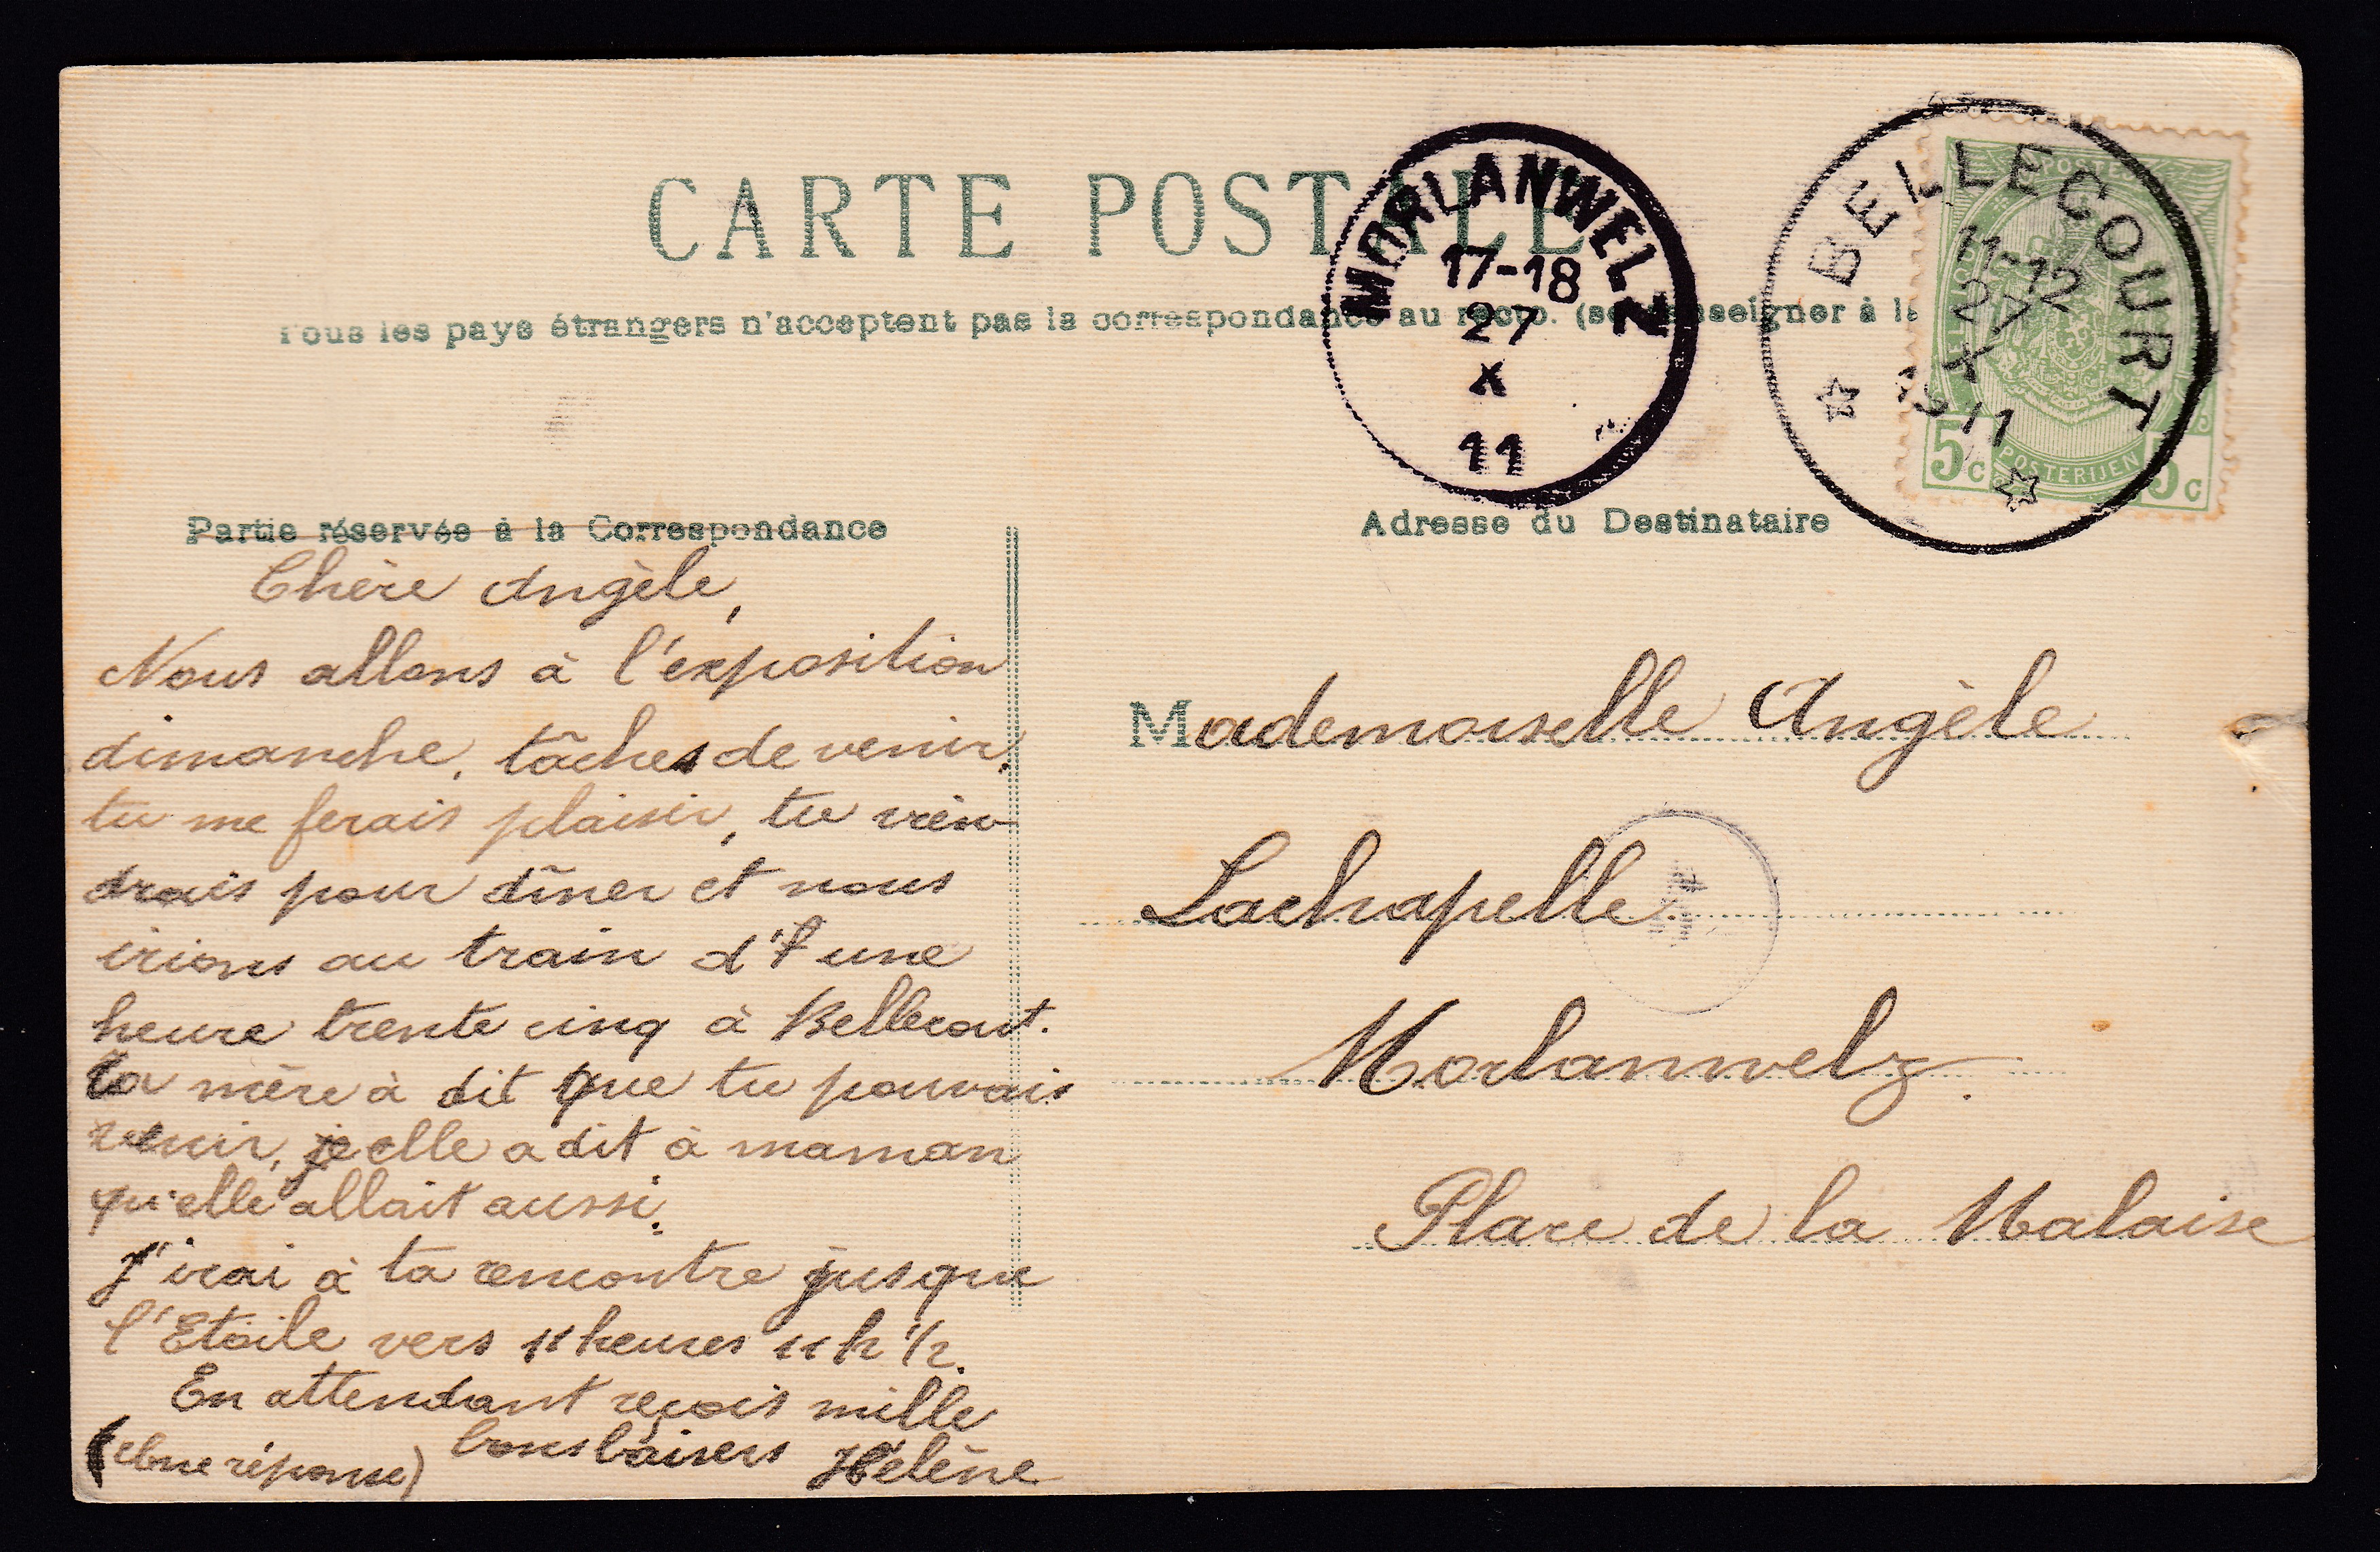 CARTE POSTALE
Tous les pays étrangers n'acceptent pas la correspondance au recto. (se renseigner à la
MORLANWELZ
17-18
27
X
11
BELLECOURT
11-12
27
X
1911
POSTERIJEN
5c 5c
Partie réservée à la Correspondance
Chère Angèle,
Nous allons à l'exposition
dimanche, tâches de venir,
tu me ferais plaisir, tu vien
drais pour dîner et nous
irions au train d' une
heure trente cinq à Bellecourt.
Ta mère à dit que tu pouvais
venir, je elle a dit à maman
qu'elle allait aussi.
J'irai à ta rencontre jusque
l'Etoile vers 11 heures 11 h 1/2.
En attendant reçois mille
bons baisers Hélène
réponse)
Adresse du Destinataire
Mademoiselle Angèle
Lachapelle
Morlanwelz.
Place de la Malaise